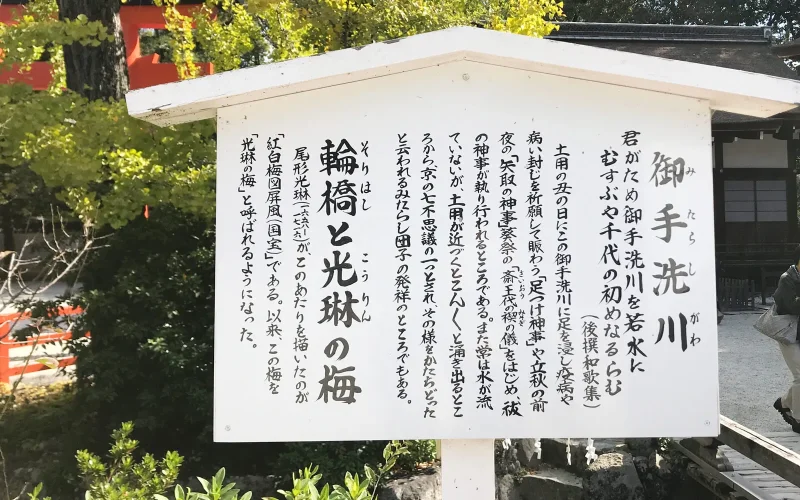 御手洗川
みたらしがわ
君がため御手洗川を若水に
むすぶや千代の初めなるらむ
(後撰和歌集)
土用の丑の日にこの御手洗川に足を浸し疫病や
病い封じを祈願して賑わう「足つけ神事」や立秋の前
夜の「矢取の神事」葵祭の「斎王代の禊の儀」をはじめ、祓
さいおう みそぎ
の神事が執り行われるところである。また常は水が流
れていないが、土用が近づくとこんこんと湧き出るとこ
ろから、京の七不思議の一つとされ、その様をかたどった
と云われるみたらし団子の発祥のところでもある。
輪橋と光琳の梅
そりはし こうりん
尾形光琳(一六五八~一七一六)が、このあたりを描いたのが
「紅白梅図屏風(国宝)」である。以来、この梅を
「光琳の梅」と呼ばれるようになった。